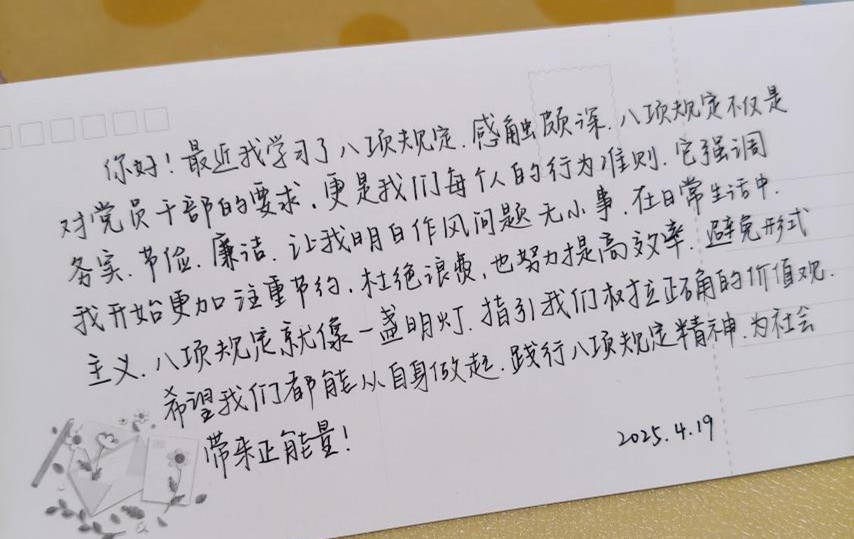 你好！最近我学习了八项规定，感触颇深，八项规定不仅是
对党员干部的要求，更是我们每个人的行为准则，它强调
务实、节俭、廉洁，让我明白作风问题无小事，在日常生活中，
我开始更加注重节约，杜绝浪费，也努力提高效率，避免形式
主义，八项规定就像一盏明灯，指引我们树立正确的价值观，
希望我们都能从自身做起，践行八项规定精神，为社会
带来正能量！
2025.4.19